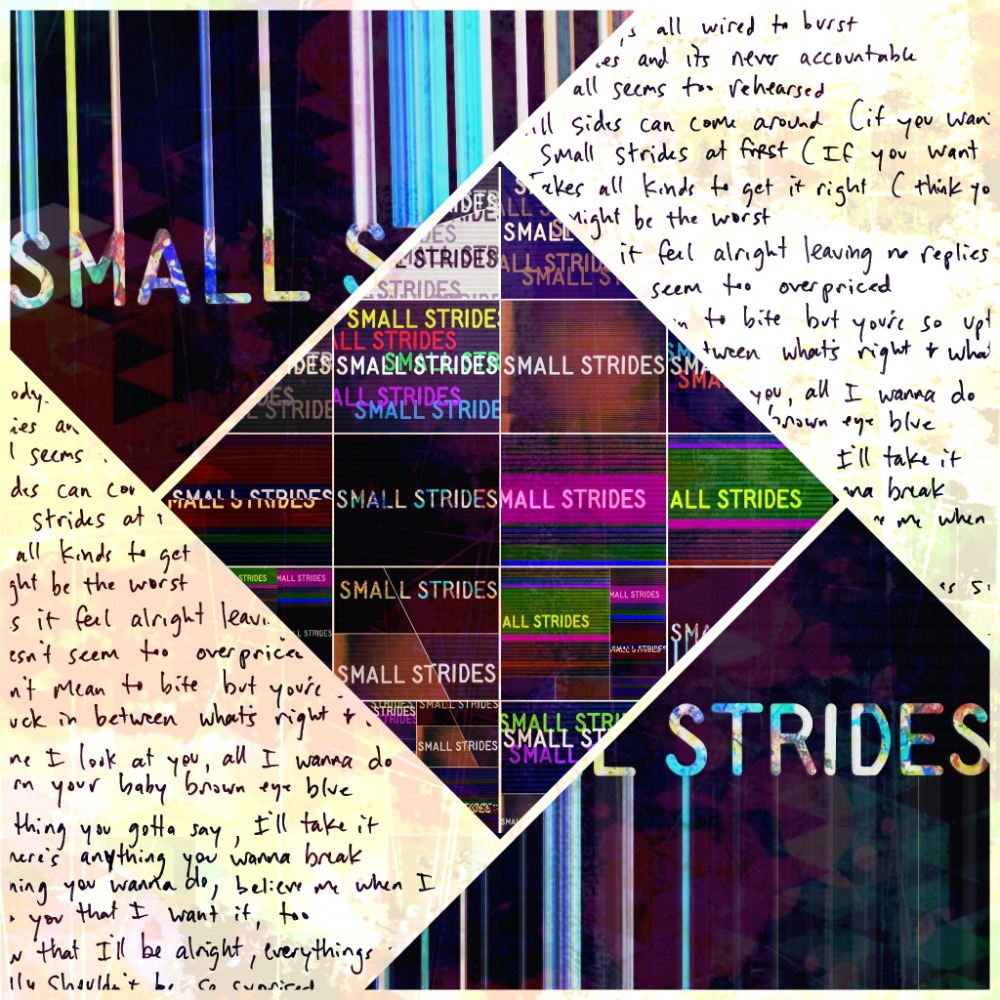 all wired to burst
and its never accountable
all seems too rehearsed
Sides can come around (if you wan
Small strides at first (If you want
akes all kinds to get it right ( think yo
might be the worst
it feel alright leaving no replies
seem too overpriced
to bite but you're so upt
tween what's right + wha
you, all I wanna do
brown eye blue
I'll take it
na break
me when
SMALL S
L STRIDES
ody
ies an
l seems
des can co
strides at
all kinds to get
ght be the worst
s it feel alright leavi
esn't seem too overprice
n't mean to bite but you're
uck in between what's right +
me I look at you, all I wanna do
your baby brown eye blue
thing you gotta say, I'll take it
here's anything you wanna break
ning you wanna do, believe me when I
you that I want it, too
that I'll be alright, everythings
lly Shouldn't be so suprised
IDES
STRIDES
STRIDES
SMALL
ALL STRIDES
SMALL
SMALL STRIDES
ALL STRIDES
SMALL STRIDES
SMALL STR
ALL STRIDES
SMALL STRIDE
SMALL STRIDES
SMALL STRIDES
SMALL STRIDES
SMALL STRIDES
ALL STRIDES
STRIDES
MALL STRIDES
LL STRIDES
SMALL STRIDES
SMALL STRIDES
ALL STRIDES
SMALL STRIDES
SMALL STRIDES
SMALL STRIDES
SMALL STRI
SMALL ST
SMALL